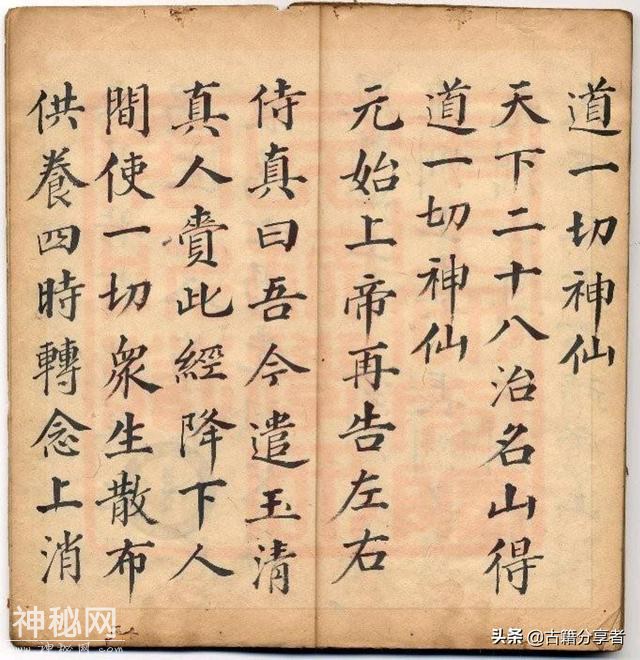 道一切神仙
天下二十八治名山得
道一切神仙
元始上帝再告左右
侍真曰吾今遣玉清
真人賫此經降下人
間使一切衆生散布
供養四時轉念上消
神秘网
头条 @古籍分享者